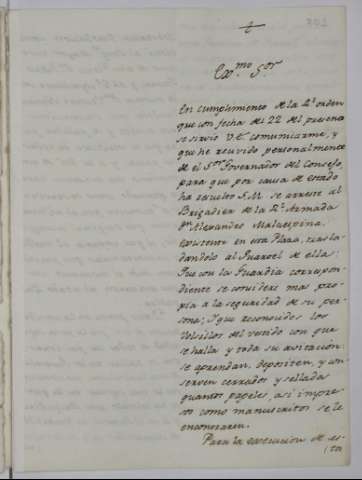 Ex.mo S.or
En cumplimiento de la R.l orden
que con fecha del 22 del presente
se sirvió V.E. comunicarme, y
que he recivido personalmente
de el S.or Governador del Consejo,
para que por causa de estado
ha resuelto S.M. se arreste al
Brigadier de la R.l Armada
D.n Alexandro Malaespina,
existente en esta Plaza, trasla-
dandolo al Quartel de ella;
que con la Guardia correspon-
diente se considere mas pro-
pia a la seguridad de su per-
sona; y que reconocidos los
volsillos del vestido con que
se halla y toda su avitación
se aprendan, depositen, y con-
serven cerrados y sellados
quantos papeles, asi impre-
sos como manuscritos se le
encontraren.
Para la execucion de es-
ta